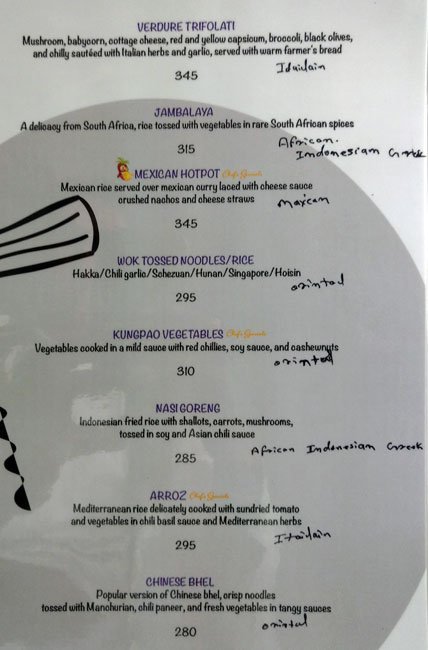 VERDURE TRIFOLATI
Mushroom, babycorn, cottage cheese, red and yellow capsicum, broccoli, black olives,
and chilly sautéed with Italian herbs and garlic, served with warm farmer's bread
345
Itailain
JAMBALAYA
A delicacy from South Africa, rice tossed with vegetables in rare South African spices
315
African.
Indonesian Greek
MEXICAN HOTPOT Chef's Speciale
Mexican rice served over mexican curry laced with cheese sauce
crushed nachos and cheese straws
345
Maxican
WOK TOSSED NOODLES/RICE
Hakka/Chili garlic/Schezuan/Hunan/Singapore/Hoisin
295
orintal
KUNGPAO VEGETABLES Chef's Speciale
Vegetables cooked in a mild sauce with red chillies, soy sauce, and cashewnuts
310
orintal
NASI GORENG
Indonesian fried rice with shallots, carrots, mushrooms,
tossed in soy and Asian chili sauce
285
African Indonesian Greek
ARROZ Chef's Speciale
Mediterranean rice delicately cooked with sundried tomato
and vegetables in chili basil sauce and Mediterranean herbs
295
Itailain
CHINESE BHEL
Popular version of Chinese bhel, crisp noodles
tossed with Manchurian, chili paneer, and fresh vegetables in tangy sauces
280
orintal